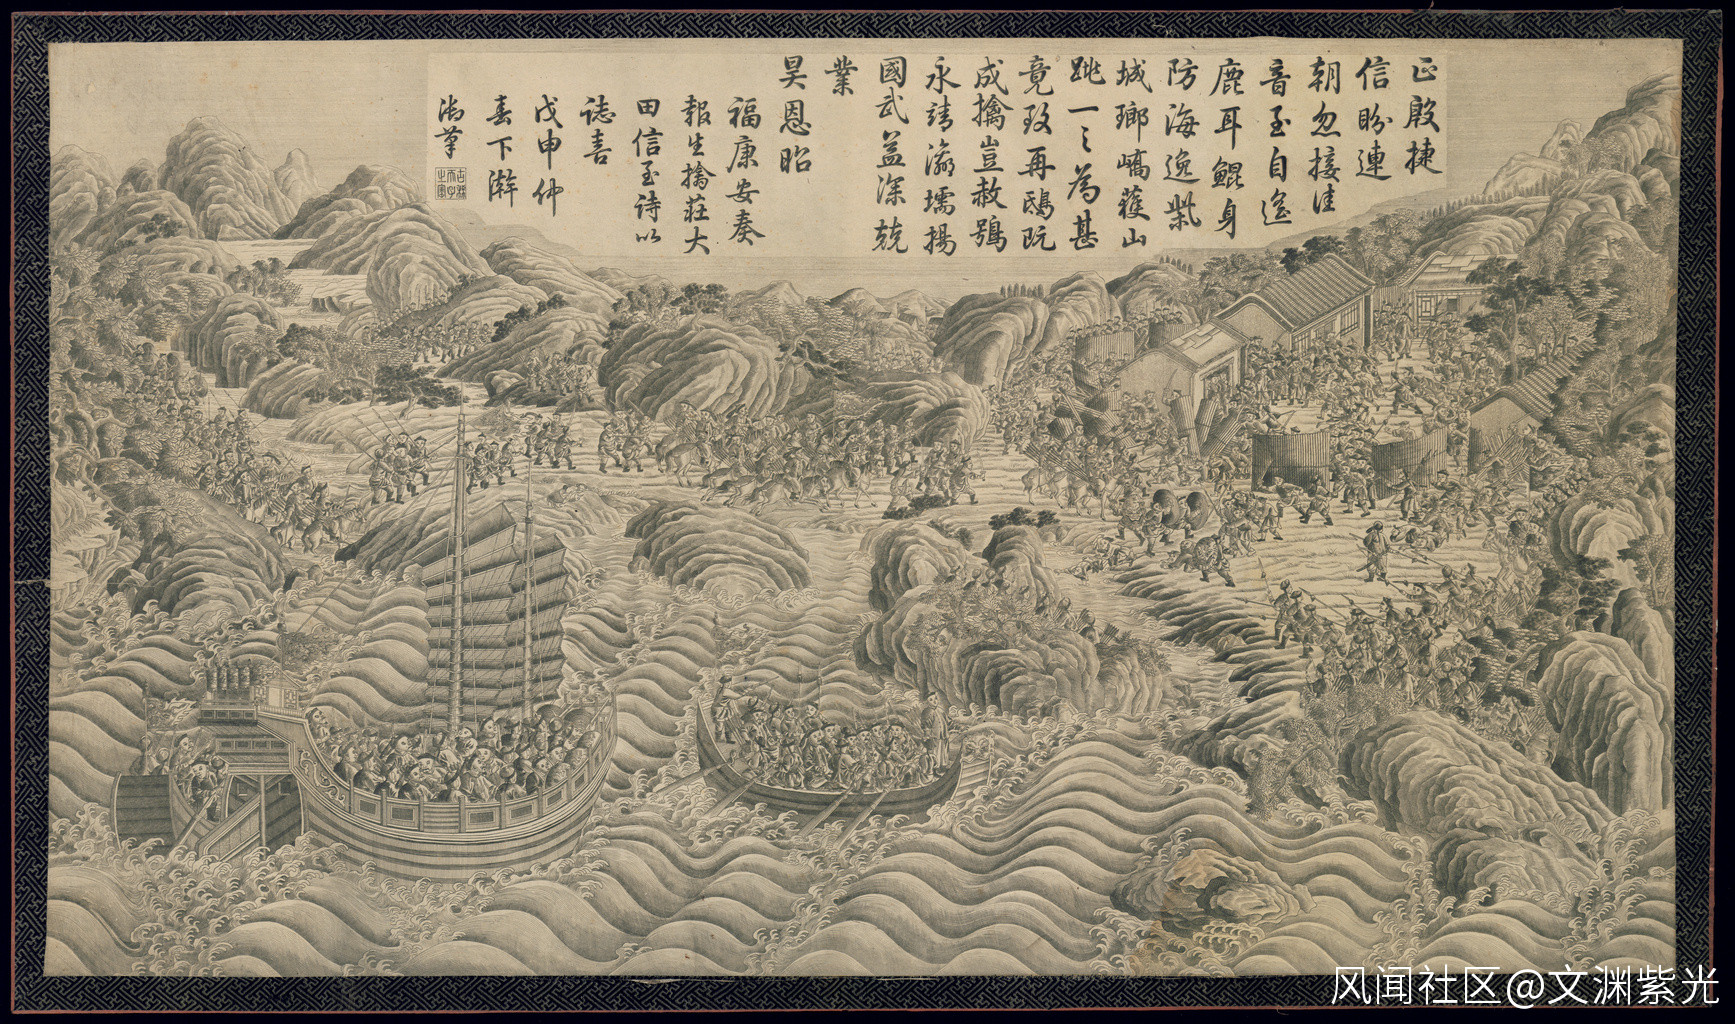 正殷捷
信盼連
朝忽接佳
音至自遙
鹿耳鯤身
防海逸柴
城瑯嶠獲山
跳一之為甚
竟致再鴟阮
成擒豈赦鴞
永靖瀛壖揚
國武益深兢
業
昊恩昭
福康安奏
報生擒莊大
田信至詩以
誌喜
戊申仲
春下澣
御筆
古稀天子之寶
风闻社区@文渊紫光